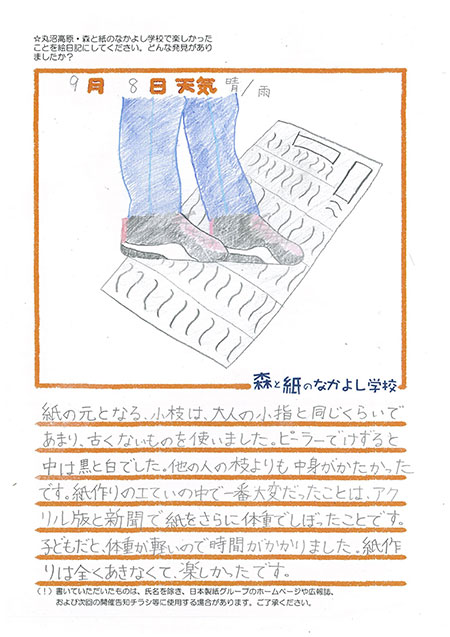 ☆丸沼高原・森と紙のなかよし学校で楽しかった
ことを絵日記にしてください。どんな発見があり
ましたか？
9月 8日 天気 晴/雨
森と紙のなかよし学校
紙の元となる、小枝は、大人の小指と同じくらいで
あまり、古くないものを使いました。ピーラーでけずると
中は黒と白でした。他の人の枝よりも中身がかたかった
です。紙作りの工ていの中で一番大変だったことは、アク
リル版と新聞で紙をさらに体重でしぼったことです。
子どもだと、体重が軽いので時間がかかりました。紙作
りは全くあきなくて、楽しかったです。
（！）書いていただいたものは、氏名を除き、日本製紙グループのホームページや広報誌、
および次回の開催告知チラシ等に使用する場合があります。ご了承ください。